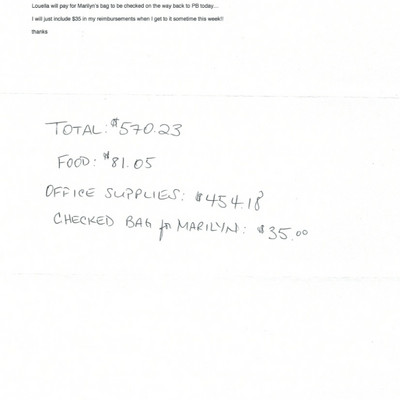 Louella will pay for Marilyn's bag to be checked on the way back to PB today...
I will just include $35 in my reimbursements when I get to it sometime this week!!
thanks
TOTAL: $570.23
FOOD: $81.05
OFFICE SUPPLIES: $454.18
CHECKED BAG for MARILYN: $35.00